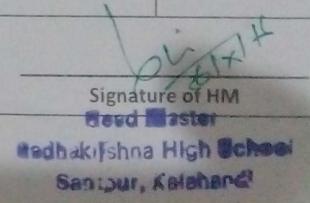 Signature of HM
Head Master
Radhakrishna High School
Santpur, Kalahandi